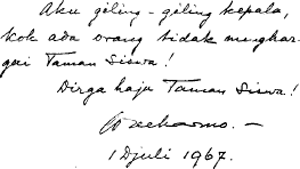 Aku giling-giling kepala,
kok ada orang tidak menghar-
gai Taman Siswa!
Dirga haju Taman Siswa!
Soekarno.-
1 Djuli 1967.